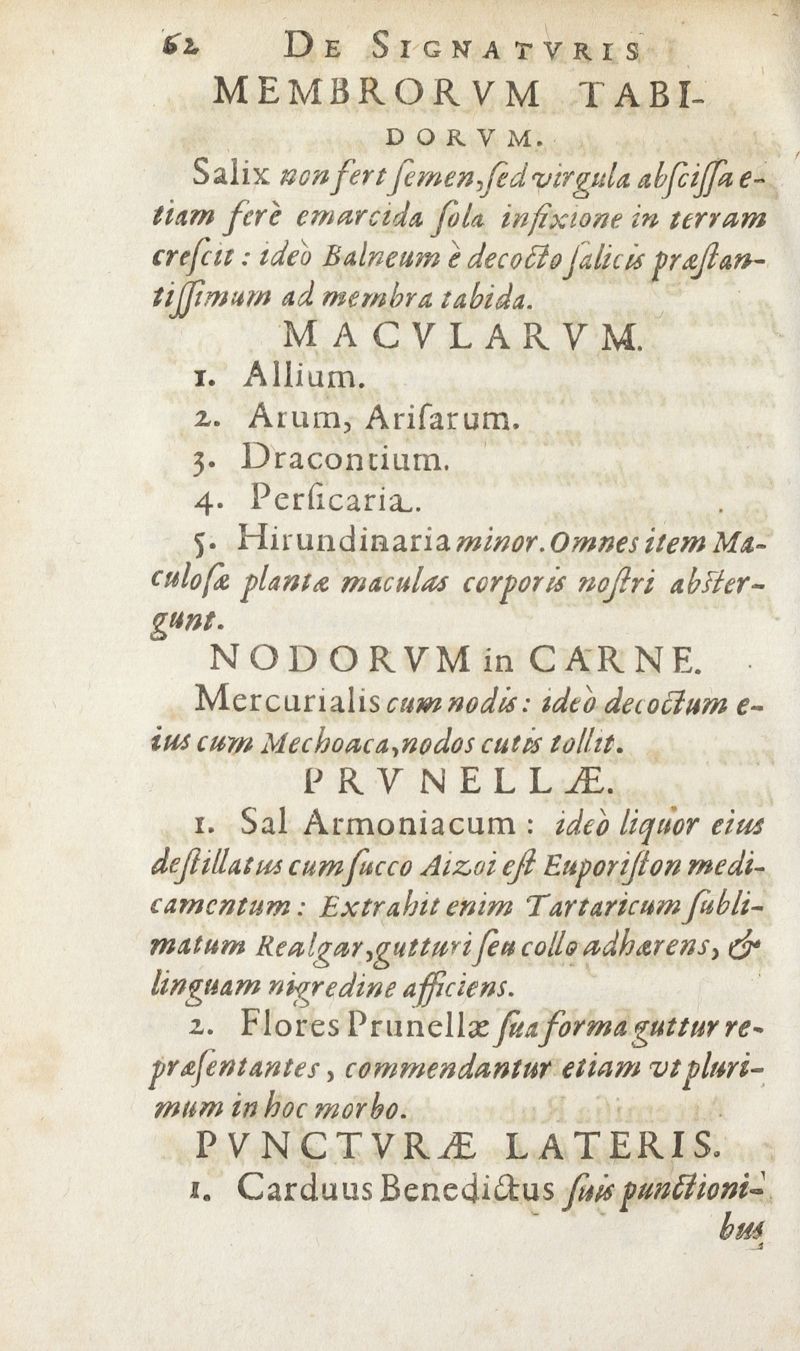 62 DE SIGNATVRIS
MEMBRORVM TABI-
DORVM.
Salix non fert ſemen, ſed virgula abſciſſa e-
tiam ferè emarcida ſola infixione in terram
creſcit : ideò Balneum è decocto ſalicis præſtan-
tiſſimum ad membra tabida.
MACVLARVM.
1. Allium.
2. Arum, Ariſarum.
3. Dracontium.
4. Perſicaria.
5. Hirundinaria minor. Omnes item Ma-
culoſæ plantæ maculas corporis noſtri abſter-
gunt.
NODORVM in CARNE.
Mercurialis cum nodis : ideò decoctum e-
ius cum Mechoaca, nodos cutis tollit.
PRVNELLÆ.
1. Sal Armoniacum : ideò liquor eius
deſtillatus cum ſucco Aizoi eſt Euporiſton medi-
camentum : Extrahit enim Tartaricum ſubli-
matum Realgar, gutturi ſeu collo adhærens, &
linguam nigredine afficiens.
2. Flores Prunellæ ſua forma guttur re-
præſentantes, commendantur etiam vt pluri-
mum in hoc morbo.
PVNCTVRÆ LATERIS.
1. Carduus Benedictus ſuis punctioni-
bus